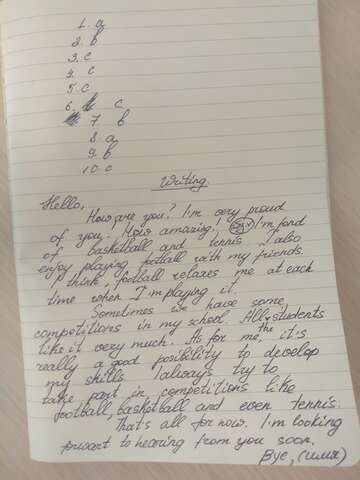 1. a
2. b
3. c
4. c
5. c
6. c
7 b
8. a
9. b
10. c
Writing
Hello,
How are you? I'm very proud
of you. How amazing! I'm fond
of basketball and tennis. I also
enjoy playing football with my friends.
I think, football relaxes me at each
time when I'm playing it.
Sometimes we have some
competitions in my school. All students
like it very much. As for me, the it's
really a good posibility to develop
my skills. I always try to
take part in competitions like
football, basketball and even tennis.
That's all for now. I'm looking
forwart to hearing from you soon.
Bye, (имя)